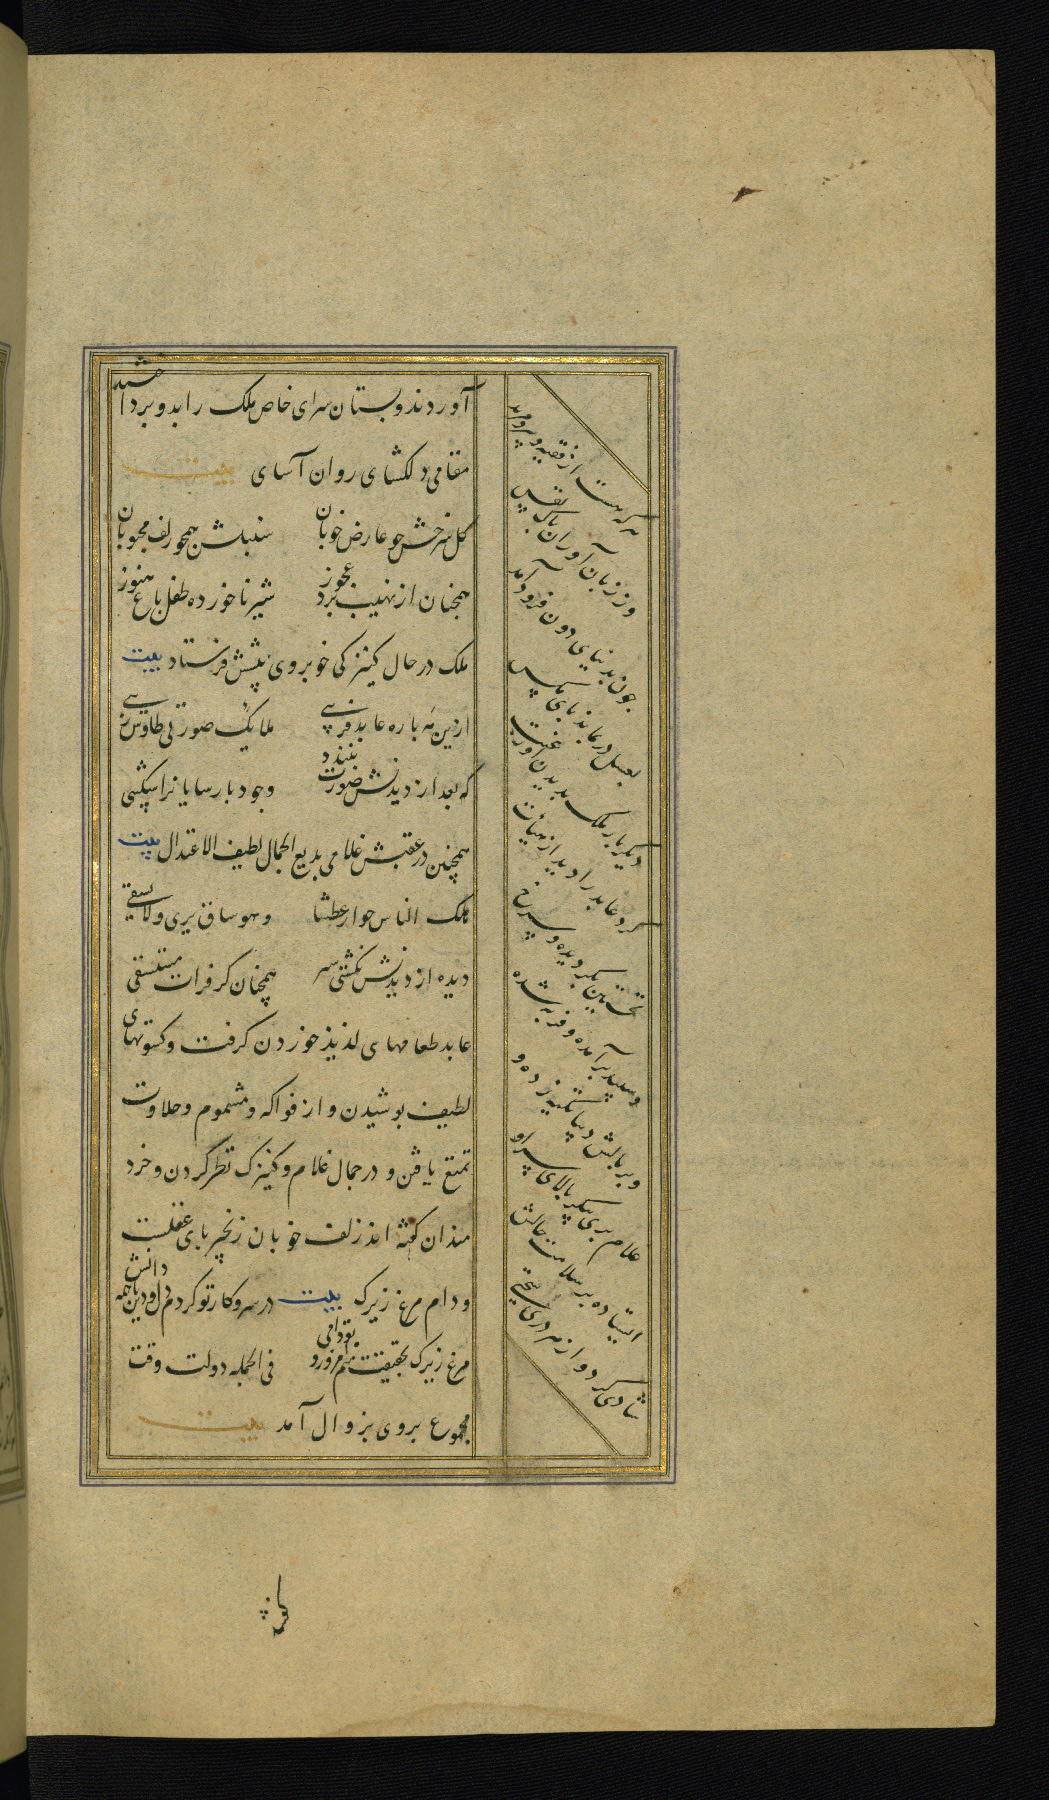 آوردند و بستان سرای خاص ملک را بدو بردا
ختند
مقامی دلکشای روان آسای بیت
کل سرخش جو عارض خوبان سنبلش همجو زلف محبوبان
همجنان از نهیب برد عجوز شیر ناخورده طفل باغ هنوز
ملک در حال کنیزکی خوبروی پیشش فرستاد بیت
ازین مه باره عابد فریبی ملایک صورتی طاوس زیبی
که بعد از دیدنش صورت نبندد وجود بارسایانرا شکیبی
همچنین در عقبش غلامی بدیع الجمال لطیف الاعتدال بیت
هلک الناس حوله عطشا وهو ساق یری ولا یسقی
دیده از دیدنش نکشتی سیر همچنان کز فرات مستسقی
عابد طعامهای لذیذ خوردن کرفت و کسوتهای
لطیف بوشیدن و از فواکه و مشموم و حلاوت
تمتع یافتن و در جمال غلام و کنیزک نظر کردن و خرد
مندان کفته اند زلف خوبان زنجیر بای عقلست
و دام مرغ زیرک بیت در سر و کار تو کردم دل و دین با همه دانش
مرغ زیرک بحقیقت منم امروز و تو دامی فی الجمله دولت وقت
مجموع بروی بزوال آمد بیت
هرکه هست از فقیه و پیر و مرید
وز زبان آوران باک نفس
جون بدنیای دون فرود آمد
بعسل در بماند بای مکس
دیکر بار ملک بدیدن او رغبت
کرد عابد را دید از هیات
نخستین بکردیده و سرخ
و سپید برآمده و فربه شده
و بر بالش دیبا تکیه زده و
غلام بری پیکر بالای سر او
ایستاده بر سلامت حالش
شادی کرد و از هر دری سخن